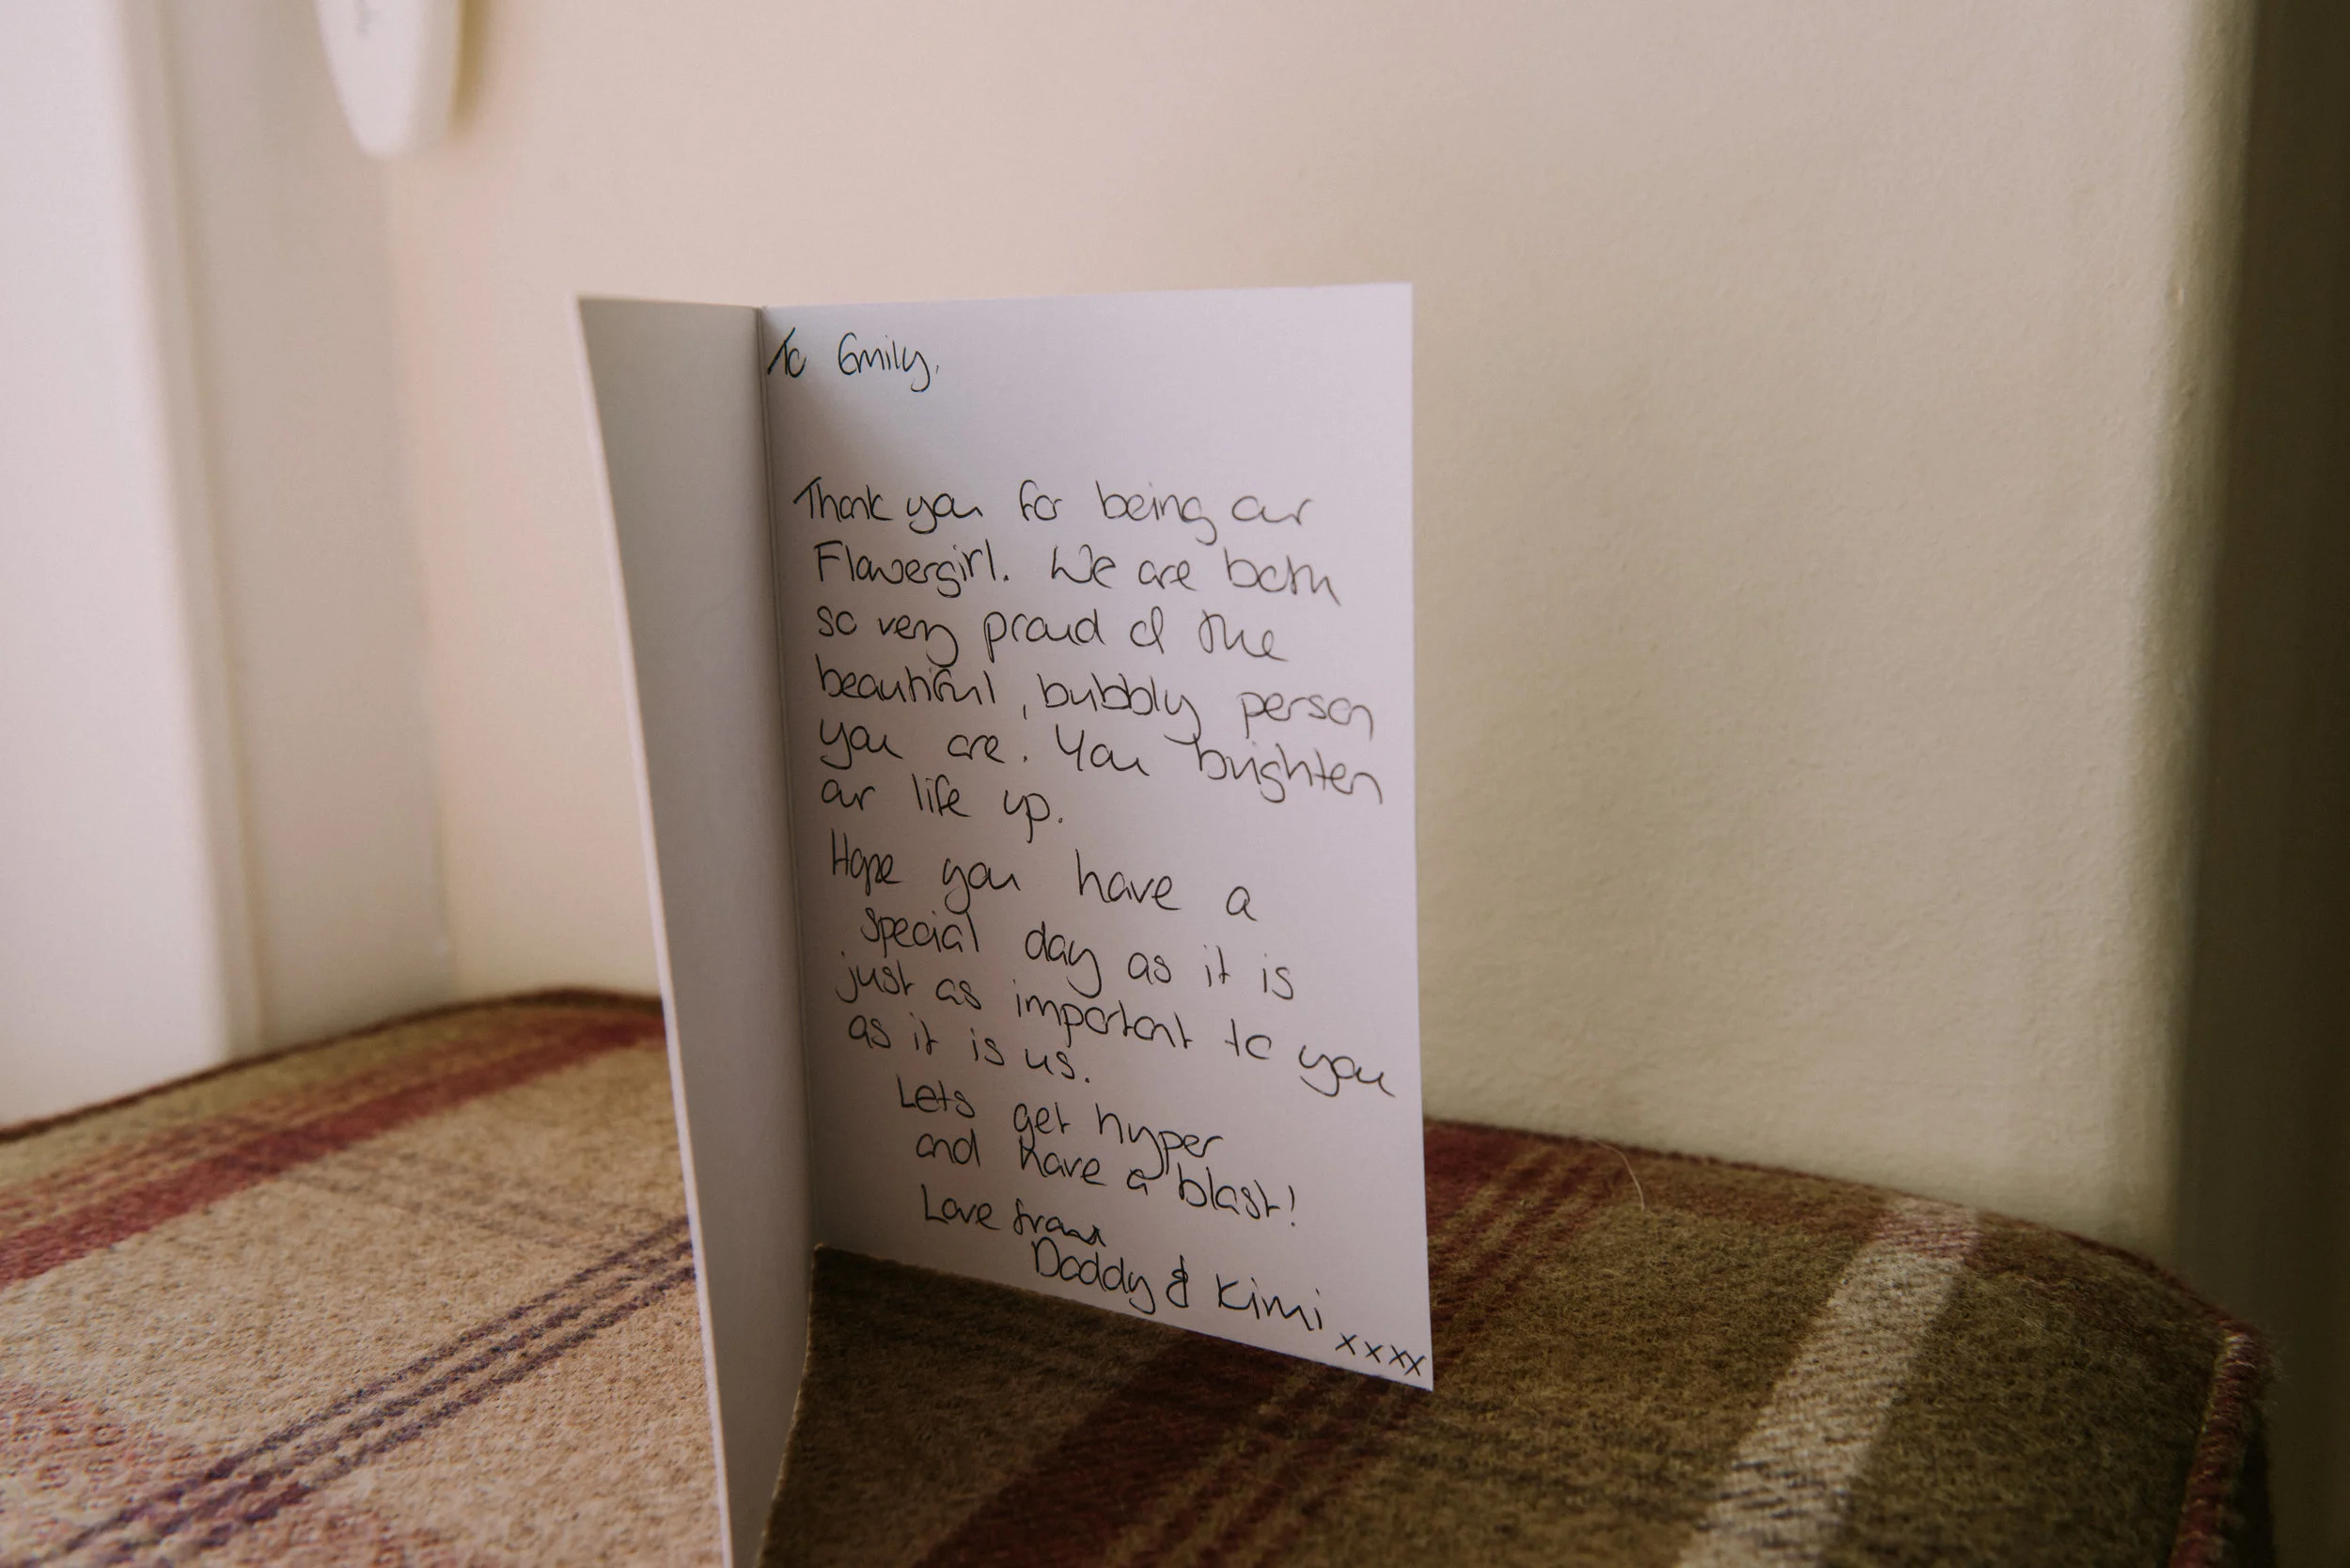 To Emily,
Thank you for being our
Flowergirl. We are both
so very proud of the
beautiful, bubbly person
you are. You brighten
our life up.
Hope you have a
special day as it is
just as important to you
as it is us.
Lets get hyper
and have a blast!
Love from
Daddy & Kimi
xxxx